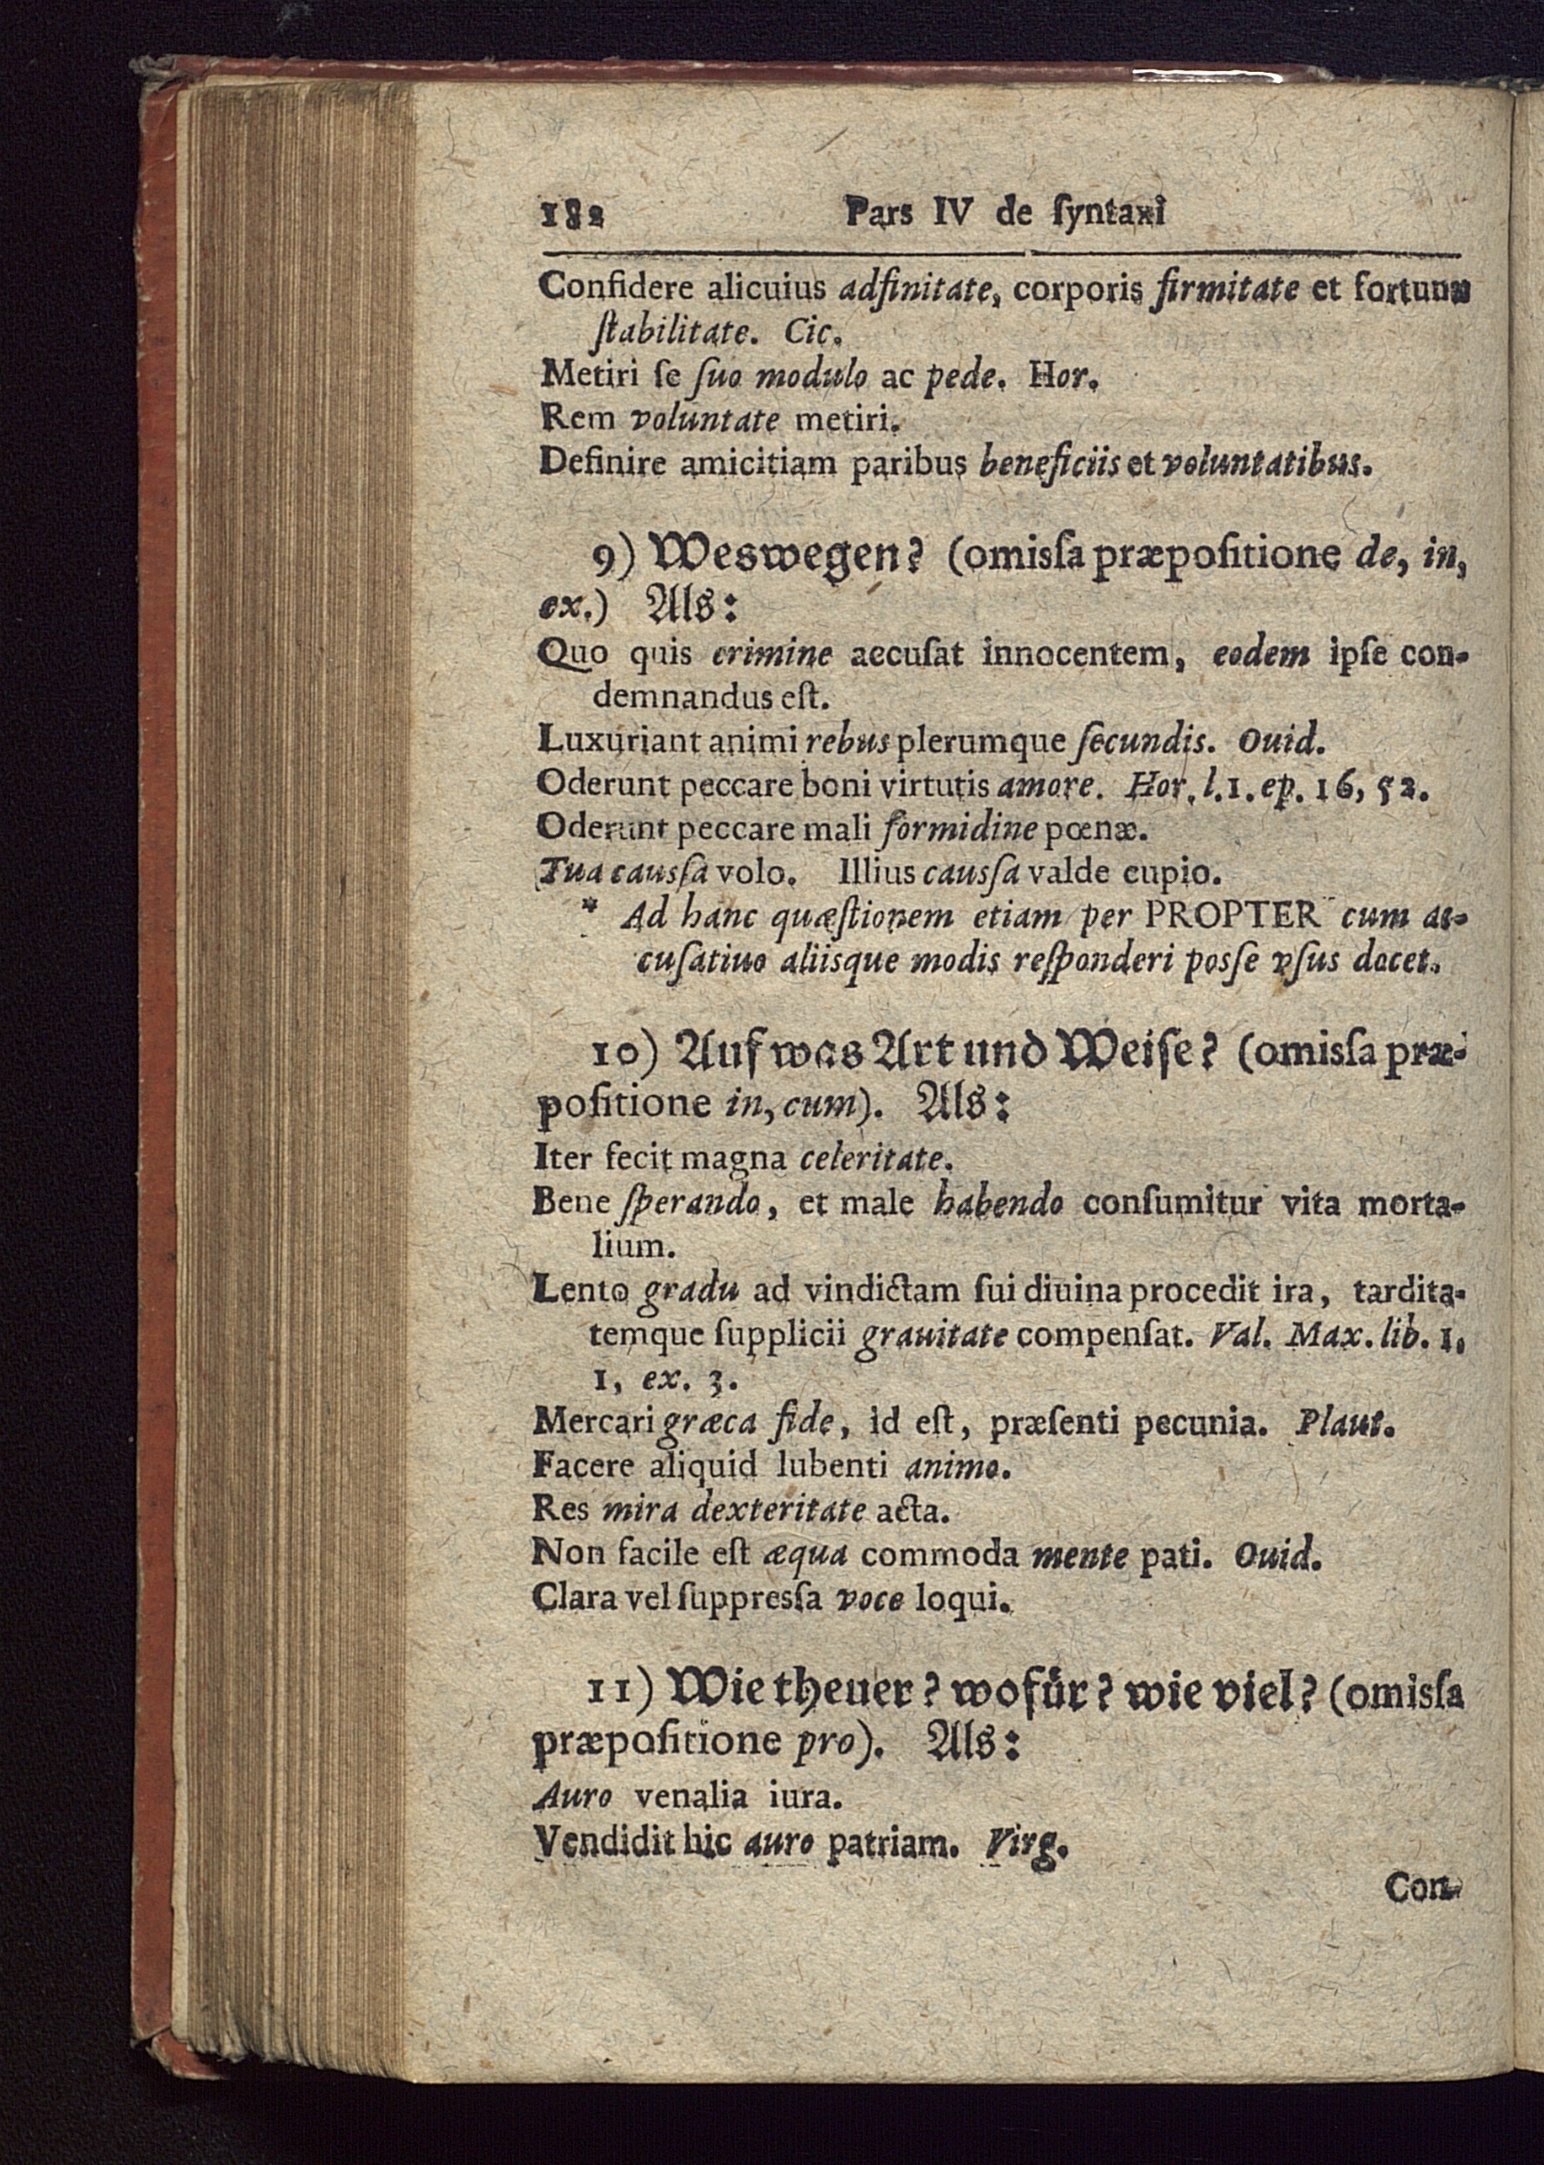 182 Pars IV de ſyntaxi
Confidere alicuius adfinitate, corporis firmitate et fortunæ
ſtabilitate. Cic.
Metiri ſe ſuo modulo ac pede. Hor.
Rem voluntate metiri.
Definire amicitiam paribus beneficiis et voluntatibus.
9) Weswegen? (omiſſa præpoſitione de, in,
ex.) Als:
Quo quis crimine accuſat innocentem, eodem ipſe con-
demnandus eſt.
Luxuriant animi rebus plerumque ſecundis. Ouid.
Oderunt peccare boni virtutis amore. Hor. l. 1. ep. 16, 52.
Oderunt peccare mali formidine pœnæ.
Tua cauſſa volo. Illius cauſſa valde cupio.
* Ad hanc quæſtionem etiam per PROPTER cum ac-
cuſatiuo aliisque modis reſponderi posſe vſus docet.
10) Auf was Art und Weiſe? (omisſa præ-
poſitione in, cum). Als:
Iter fecit magna celeritate.
Bene ſperando, et male habendo conſumitur vita morta-
lium.
Lento gradu ad vindictam ſui diuina procedit ira, tardita-
temque ſupplicii grauitate compenſat. Val. Max. lib. 1,
1, ex. 3.
Mercari græca fide, id eſt, præſenti pecunia. Plaut.
Facere aliquid lubenti animo.
Res mira dexteritate acta.
Non facile eſt æqua commoda mente pati. Ouid.
Clara vel ſuppresſa voce loqui.
11) Wie theuer? wofür? wie viel? (omisſa
præpoſitione pro). Als:
Auro venalia iura.
Vendidit hic auro patriam. Virg.
Con-